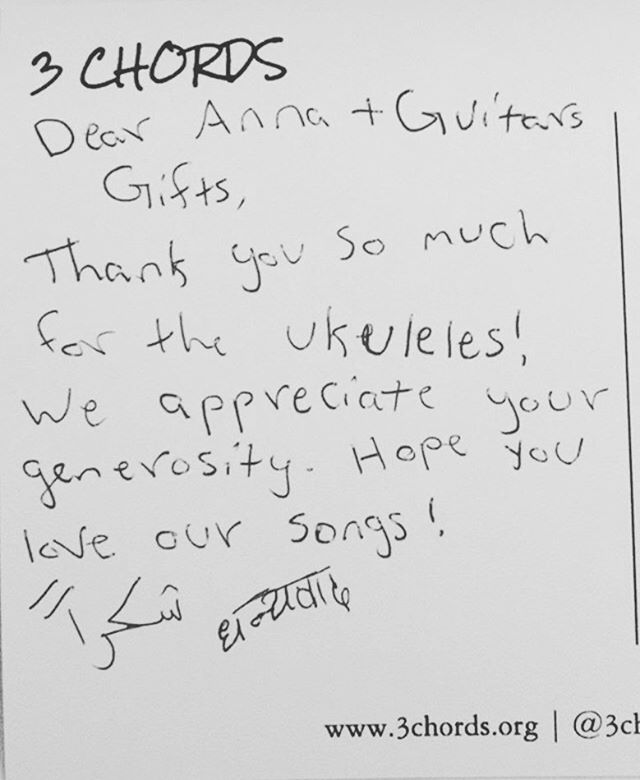 3 CHORDS
Dear Anna + Guitars
Gifts,
Thank you so much
for the ukuleles!
We appreciate your
generosity. Hope you
love our songs!
شكراً धन्यवाद
www.3chords.org | @3ch